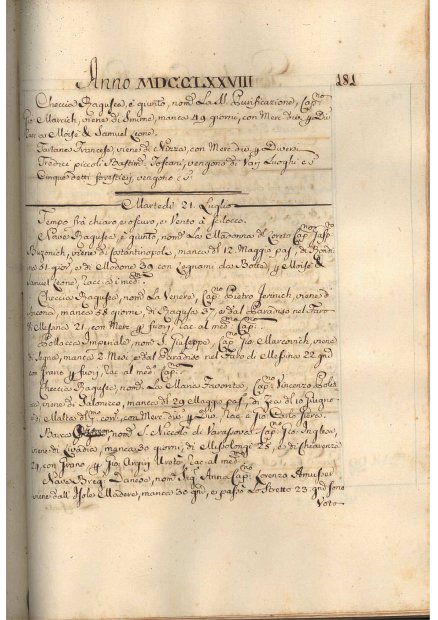 Anno MDCCLXXVIII 181
Checcia Ragusea, è giunto, nom. La M. Purificazione, Cap.no
Gio Marcich, viene di Smirne, manca 49 giorni, con Merc. div. p Div.
Rac a Moisè & Samuel Leone.
Tartane Francese, viene di Nizza, con Merc. div. p Diversi
Tredici piccoli Bastim. Toscani, vengono di Varj Luoghi e s
Cinque detti forestieri, vengono e s
Martedì 21. Luglio
Tempo frà chiaro, e oscuro, e Vento à Scilocco.
Nave Ragusea, è giunto, nom.a La Madonna di Loreto Cap.no
viene di Costantinopoli, manca dl 12. Maggio pas,
31. gio, e di Modone 39 con Legnami da Botte, p Moisè &
Samuel Leone, rac. a i med.
Checcia Ragusea, nom. La Venere, Cap.no Pietro Jerinich, viene d
Ancona, manca 58 giorni, di Ragusa 37, e dal Paradiso nel Faro
di Messina 21, con Merc. p fuori, rac. al med. Cap.no
Pollacca Imperiale, nom. S. Giuseppe, Cap.no Gio Marconich, viene
manca 2. Mesi, e dal Paradiso nel Faro di Messina 22. gni
con Grano p fuori, rac. al med.mo Cap.no
Checcia Ragusea, nom. La Maria Favorita, Cap.no Vincenzo
viene di Salonicco, manca dl 29 Maggio pas, di Zea dl 10 Giugno
di Malta dl p.mo corr., con Merc. div. p Div. Rac. a Gio Carlo
Barca nom. S. Niccolò di Varassova Cap.no Gio
viene di Livadia, manca 30 giorni, di Missolongi 28, e di Chiarenza
24, con Grano p Gio Argiri Vreto, rac. al med.mo
Nave Brig. Danese, nom. Sig. Anna Cap.no Lorenzo
viene dall' Isole Madere, manca 30 gni, e passò Lo Stretto 23. gni sono
Voto